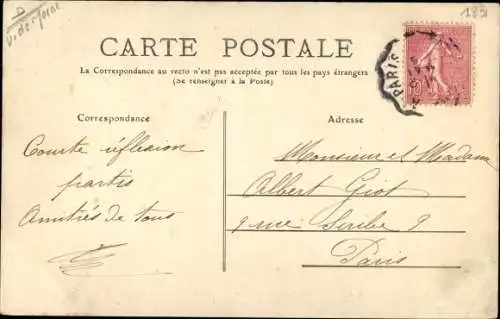 CARTE POSTALE
La Correspondance au recto n'est pas acceptée par tous les pays étrangers
(Se renseigner à la Poste)
Correspondance
Adresse
PARIS
Courte réflexion
partis
Amitiés de tous
Monsieur et Madame
Albert Giot
9 rue Scribe 9
Paris